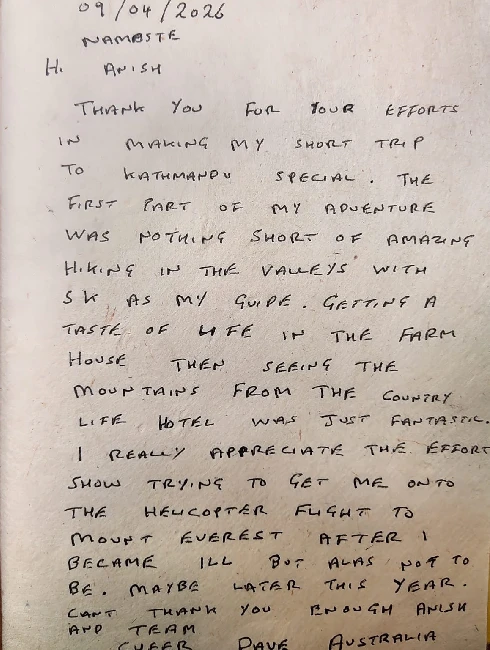 09/04/2026
NAMASTE
Hi ANISH
THANK YOU FOR YOUR EFFORTS
IN MAKING MY SHORT TRIP
TO KATHMANDU SPECIAL. THE
FIRST PART OF MY ADVENTURE
WAS NOTHING SHORT OF AMAZING
HIKING IN THE VALLEYS WITH
SK AS MY GUIDE. GETTING A
TASTE OF LIFE IN THE FARM
HOUSE THEN SEEING THE
MOUNTAINS FROM THE COUNTRY
LIFE HOTEL WAS JUST FANTASTIC.
I REALLY APPRECIATE THE EFFORT
SHOW TRYING TO GET ME ONTO
THE HELICOPTER FLIGHT TO
MOUNT EVEREST AFTER I
BECAME ILL BUT ALAS NOT TO
BE. MAYBE LATER THIS YEAR.
CANT THANK YOU ENOUGH ANISH
AND TEAM
CHEER DAVE AUSTRALIA